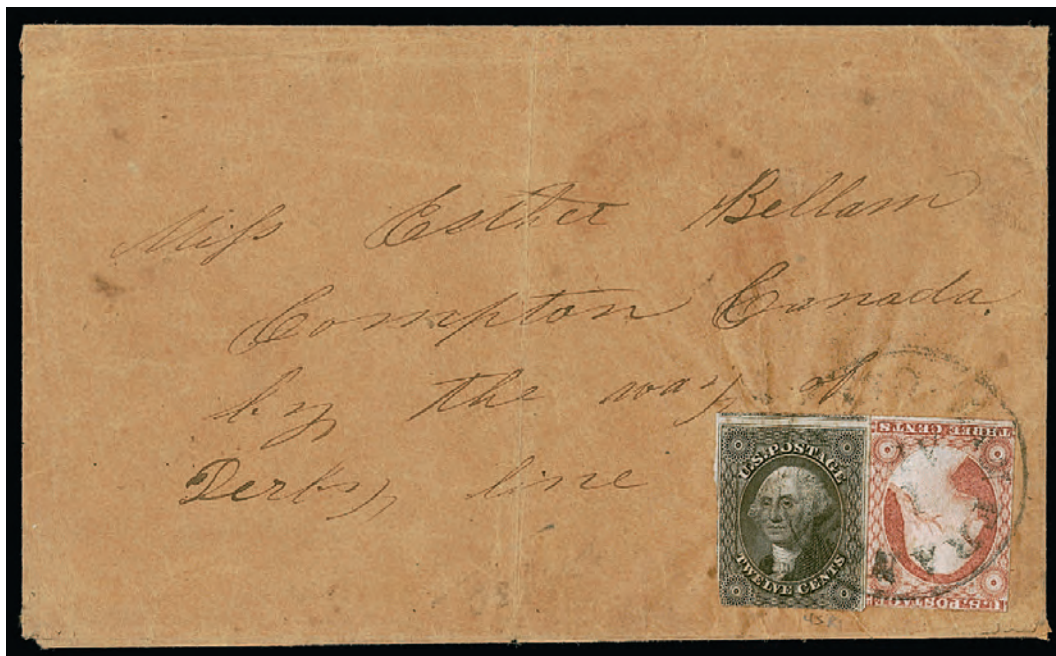 Miss Esther Bellam
Compton Canada.
by the way of
Derby line
U.S. POSTAGE
TWELVE CENTS
THREE CENTS
U.S. POSTAGE